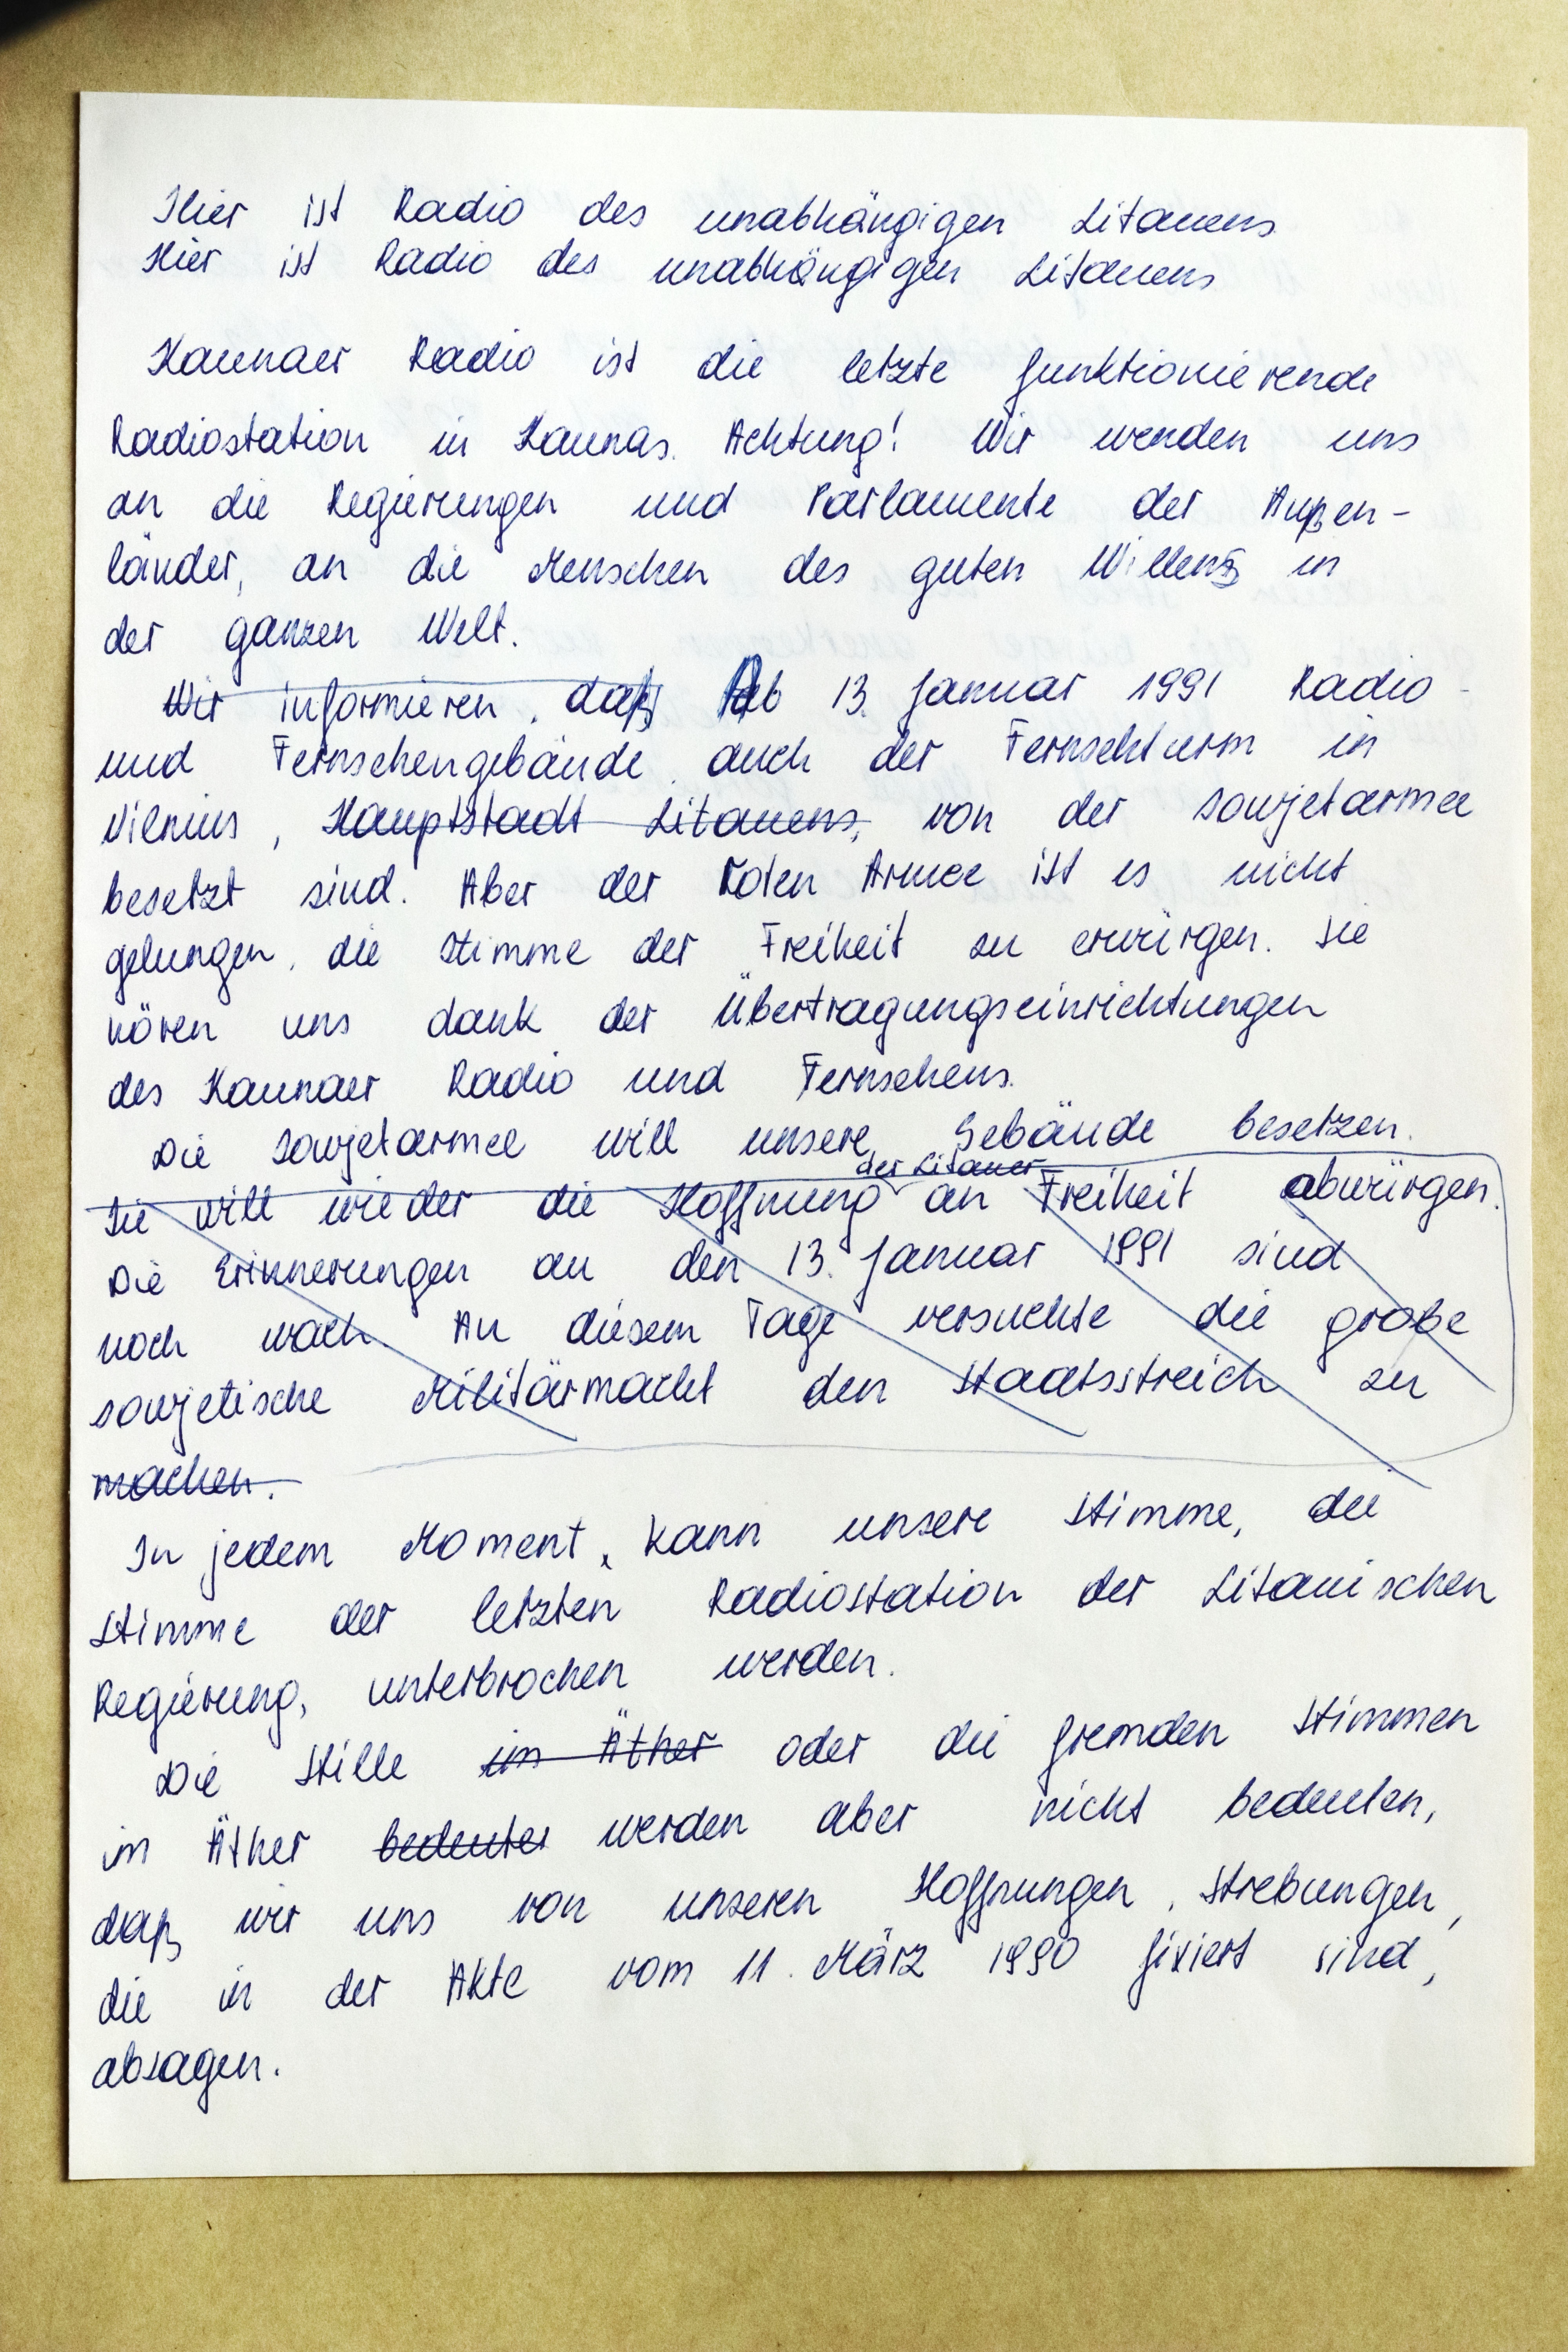 Hier ist Radio des unabhängigen Litauens
Hier ist Radio des unabhängigen Litauens
Kaunaer Radio ist die letzte funktionierende
Radiostation in Kaunas. Achtung! Wir wenden uns
an die Regierungen und Parlamente der Außen-
länder, an die Menschen des guten Willens in
der ganzen Welt.
Wir informieren, daß Ab 13. Januar 1991 Radio-
und Fernsehengebäude, auch der Fernsehturm in
Vilnius, Hauptstadt Litauens, von der Sowjetarmee
besetzt sind. Aber der Roten Armee ist es nicht
gelungen, die Stimme der Freiheit zu erwürgen. Sie
hören uns dank der Übertragungseinrichtungen
des Kaunaer Radio und Fernsehens.
Die Sowjetarmee will unsere Gebäude besetzen.
der Litauer
Sie will wieder die Hoffnung an Freiheit abwürgen.
Die Erinnerungen an den 13. Januar 1991 sind
noch wach. An diesem Tage versuchte die große
sowjetische Militärmacht den Staatsstreich zu
machen.
In jedem Moment, kann unsere Stimme, die
Stimme der letzten Radiostation der Litauischen
Regierung, unterbrochen werden.
Die Stille im Äther oder die fremden Stimmen
im Äther bedeutet werden aber nicht bedeuten,
daß wir uns von unseren Hoffnungen, Strebungen,
die in der Akte vom 11. März 1990 fixiert sind,
absagen.